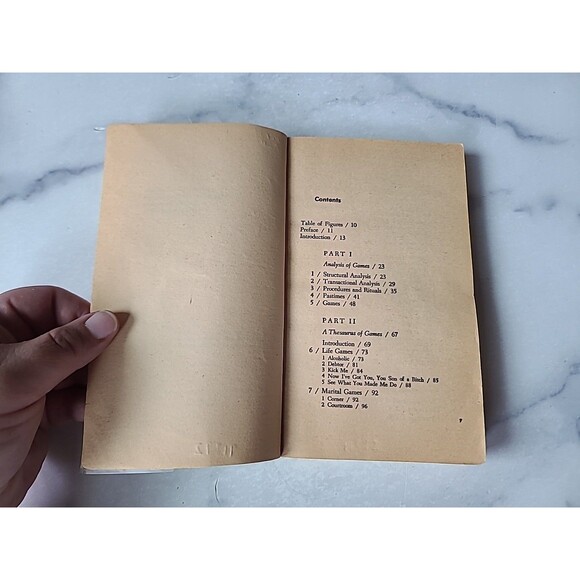 Contents
Table of Figures / 10
Preface / 11
Introduction / 13
PART I
Analysis of Games / 23
1 / Structural Analysis / 23
2 / Transactional Analysis / 29
3 / Procedures and Rituals / 35
4 / Pastimes / 41
5 / Games / 48
PART II
A Thesaurus of Games / 67
Introduction / 69
6 / Life Games / 73
1 Alcoholic / 73
2 Debtor / 81
3 Kick Me / 84
4 Now I've Got You, You Son of a Bitch / 85
5 See What You Made Me Do / 88
7 / Marital Games / 92
1 Corner / 92
2 Courtroom / 96
7